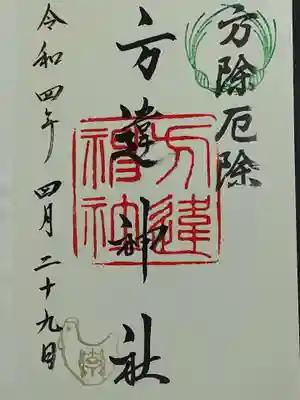 方除厄除
方違神社
令和四年 四月二十九日
方違
神社